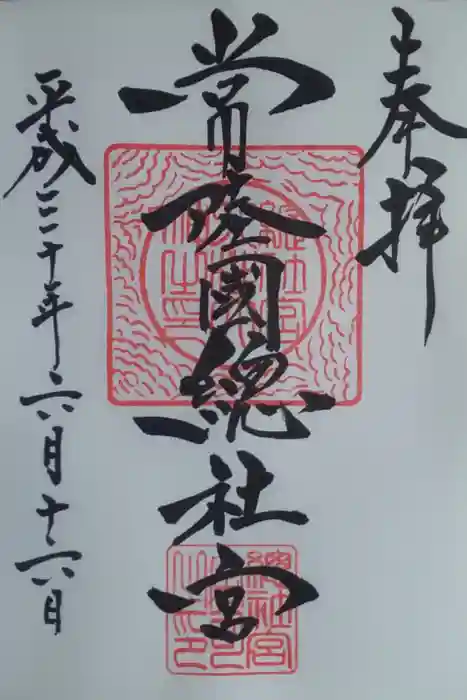 奉拝
常陸國總社宮
平成三十年六月十六日